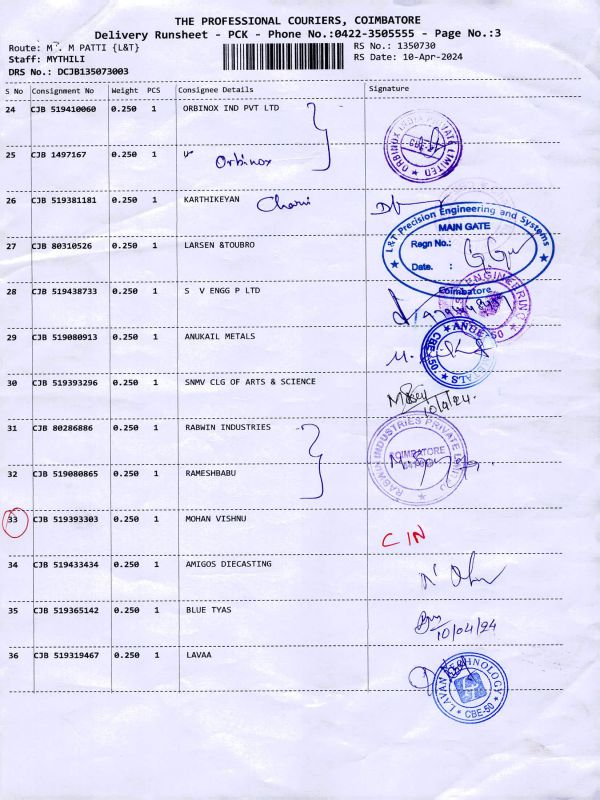 THE PROFESSIONAL COURIERS, COIMBATORE
Delivery Runsheet - PCK - Phone No.:0422-3505555 - Page No.:3
Route: M . M PATTI {L&T}
RS No.: 1350730
Staff: MYTHILI
RS Date: 10-Apr-2024
DRS No.: DCJB135073003
S No Consignment No Weight PCS Consignee Details Signature
24 CJB 519410060 0.250 1 ORBINOX IND PVT LTD
ORBINOX INDIA PRIVATE LIMITED
25 CJB 1497167 0.250 1 " Orbinox
26 CJB 519381181 0.250 1 KARTHIKEYAN
27 CJB 80310526 0.250 1 LARSEN &TOUBRO
L&T Precision Engineering and Systems
MAIN GATE
Regn No.:
Date. :
Coimbatore
28 CJB 519438733 0.250 1 S V ENGG P LTD
ENGINEERING
29 CJB 519080913 0.250 1 ANUKAIL METALS
CBE-50
30 CJB 519393296 0.250 1 SNMV CLG OF ARTS & SCIENCE
10/4/24.
31 CJB 80286886 0.250 1 RABWIN INDUSTRIES
RABWIN INDUSTRIES PRIVATE LIMITED
COIMBATORE
32 CJB 519080865 0.250 1 RAMESHBABU
33 CJB 519393303 0.250 1 MOHAN VISHNU
CIN
34 CJB 519433434 0.250 1 AMIGOS DIECASTING
35 CJB 519365142 0.250 1 BLUE TYAS
10/04/24
36 CJB 519319467 0.250 1 LAVAA
LAVAN TECHNOLOGY
CBE-50